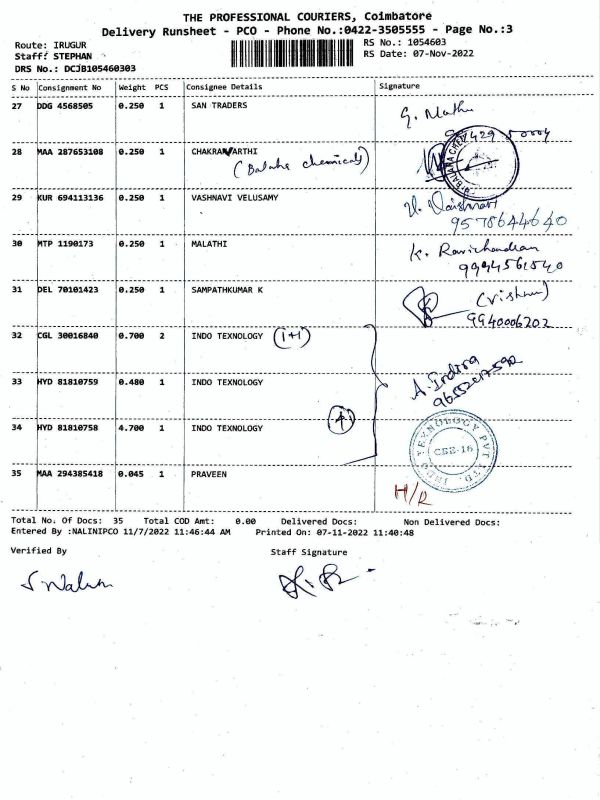 THE PROFESSIONAL COURIERS, Coimbatore
Delivery Runsheet - PCO - Phone No.:0422-3505555 - Page No.:3
Route: IRUGUR
Staff: STEPHAN
DRS No.: DCJB105460303
RS No.: 1054603
RS Date: 07-Nov-2022
S No Consignment No Weight PCS Consignee Details Signature
27 DDG 4568505 0.250 1 SAN TRADERS
28 MAA 287653108 0.250 1 CHAKRAVARTHI
(Balaha chemicals)
29 KUR 694113136 0.250 1 VASHNAVI VELUSAMY V. Vaishnavi
9578644640
30 MTP 1190173 0.250 1 MALATHI K. Ravichandran
9994561540
31 DEL 70101423 0.250 1 SAMPATHKUMAR K (Vishnu)
9940006202
32 CGL 30016840 0.700 2 INDO TEXNOLOGY (1+1)
A. Indira
33 HYD 81810759 0.480 1 INDO TEXNOLOGY
34 HYD 81810758 4.700 1 INDO TEXNOLOGY
INDO TEXNOLOGY PVT LTD.
CBE-16
35 MAA 294385418 0.045 1 PRAVEEN H/R
Total No. Of Docs: 35 Total COD Amt: 0.00 Delivered Docs: Non Delivered Docs:
Entered By :NALINIPCO 11/7/2022 11:46:44 AM Printed On: 07-11-2022 11:40:48
Verified By Staff Signature